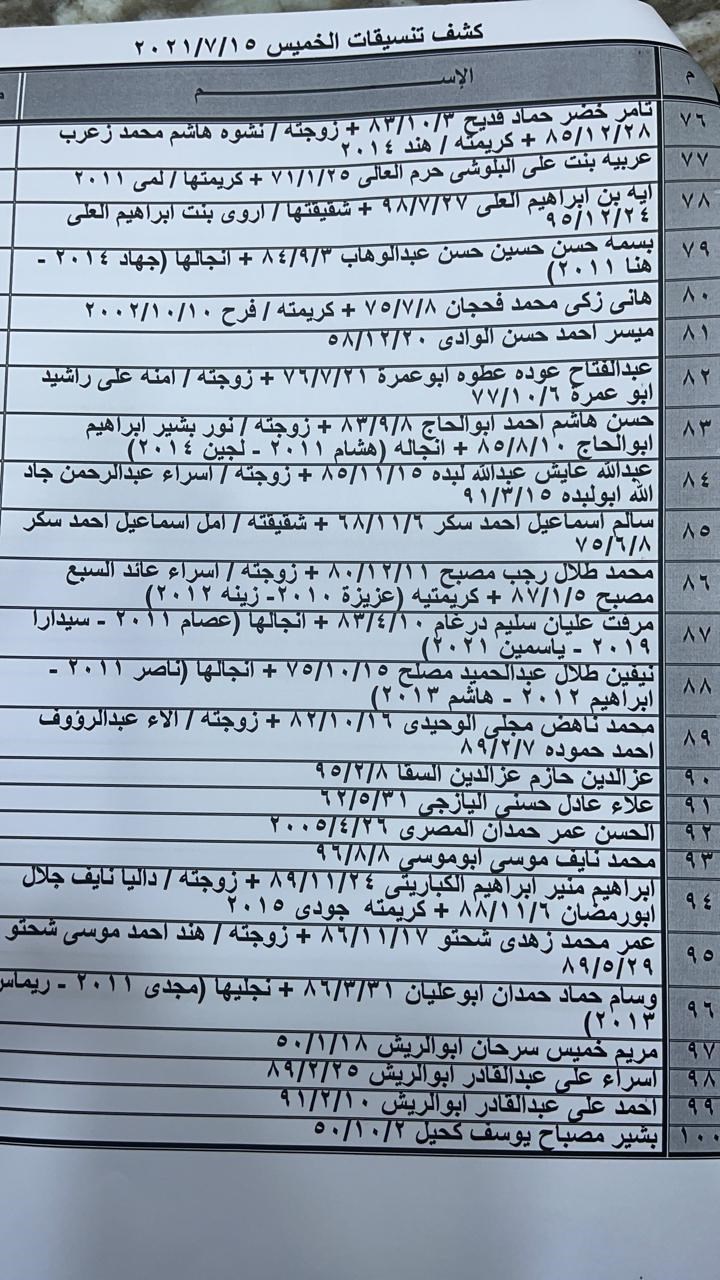 كشف تنسيقات الخميس ٢٠٢١/٧/١٥
م الإســـــــــم
٧٦ تامر خضر حماد قديح ٨٣/١٠/٣ + زوجته / نشوه هاشم محمد زعرب
٨٥/١٢/٢٨ + كريمته / هند ٢٠١٤
٧٧ عربيه بنت على البلوشى حرم العالى ٧١/١/٢٥ + كريمتها / لمى ٢٠١١
٧٨ ايه بن ابراهيم العلى ٩٨/٧/٢٧ + شقيقتها / اروى بنت ابراهيم العلى
٩٥/١٢/٢٤
٧٩ بسمه حسن حسين حسن عبدالوهاب ٨٤/٩/٣ + انجالها (جهاد ٢٠١٤ -
هنا ٢٠١١)
٨٠ هانى زكى محمد فحجان ٧٥/٧/٨ + كريمته / فرح ٢٠٠٢/١٠/١٠
٨١ ميسر احمد حسن الوادى ٥٨/١٢/٢٠
٨٢ عبدالفتاح عوده عطوه ابوعمرة ٧٦/٧/٢١ + زوجته / امنه على راشيد
ابو عمرة ٧٧/١٠/٦
٨٣ حسن هاشم احمد ابوالحاج ٨٣/٩/٨ + زوجته / نور بشير ابراهيم
ابوالحاج ٨٥/٨/١٠ + انجاله (هشام ٢٠١١ - لجين ٢٠١٤)
٨٤ عبدالله عايش عبدالله لبده ٨٥/١١/١٥ + زوجته / اسراء عبدالرحمن جاد
الله ابولبده ٩١/٣/١٥
٨٥ سالم اسماعيل احمد سكر ٦٨/١١/٦ + شقيقته / امل اسماعيل احمد سكر
٧٥/٦/٨
٨٦ محمد طلال رجب مصبح ٨٠/١٢/١١ + زوجته / اسراء عائد السبع
مصبح ٨٧/١/٥ + كريمتيه (عزيزة ٢٠١٠- زينه ٢٠١٢)
٨٧ مرفت عليان سليم درغام ٨٣/٤/١٠ + انجالها (عصام ٢٠١١ - سيدارا
٢٠١٩ - ياسمين ٢٠٢١)
٨٨ نيفين طلال عبدالحميد مصلح ٧٥/١٠/١٥ + انجالها (ناصر ٢٠١١ -
ابراهيم ٢٠١٢ - هاشم ٢٠١٣)
٨٩ محمد ناهض مجلى الوحيدى ٨٢/١٠/١٦ + زوجته / الاء عبدالرؤوف
احمد حموده ٨٩/٢/٧
٩٠ عزالدين حازم عزالدين السقا ٩٥/٢/٨
٩١ علاء عادل حسنى اليازجى ٦٢/٥/٣١
٩٢ الحسن عمر حمدان المصرى ٢٠٠٥/٤/٢٦
٩٣ محمد نايف موسى ابوموسى ٩٦/٨/٨
٩٤ ابراهيم منير ابراهيم الكباريتى ٨٩/١١/٢٤ + زوجته / داليا نايف جلال
ابورمضان ٨٨/١١/٦ + كريمته جودى ٢٠١٥
٩٥ عمر محمد زهدى شحتو ٨٦/١١/١٧ + زوجته / هند احمد موسى شحتو
٨٩/٥/٢٩
٩٦ وسام حماد حمدان ابوعليان ٨٦/٣/٣١ + نجليها (مجدى ٢٠١١ - ريماس
٢٠١٣)
٩٧ مريم خميس سرحان ابوالريش ٥٠/١/١٨
٩٨ اسراء على عبدالقادر ابوالريش ٨٩/٢/٢٥
٩٩ احمد على عبدالقادر ابوالريش ٩١/٢/١٠
١٠٠ بشير مصباح يوسف كحيل ٥٠/١٠/٢